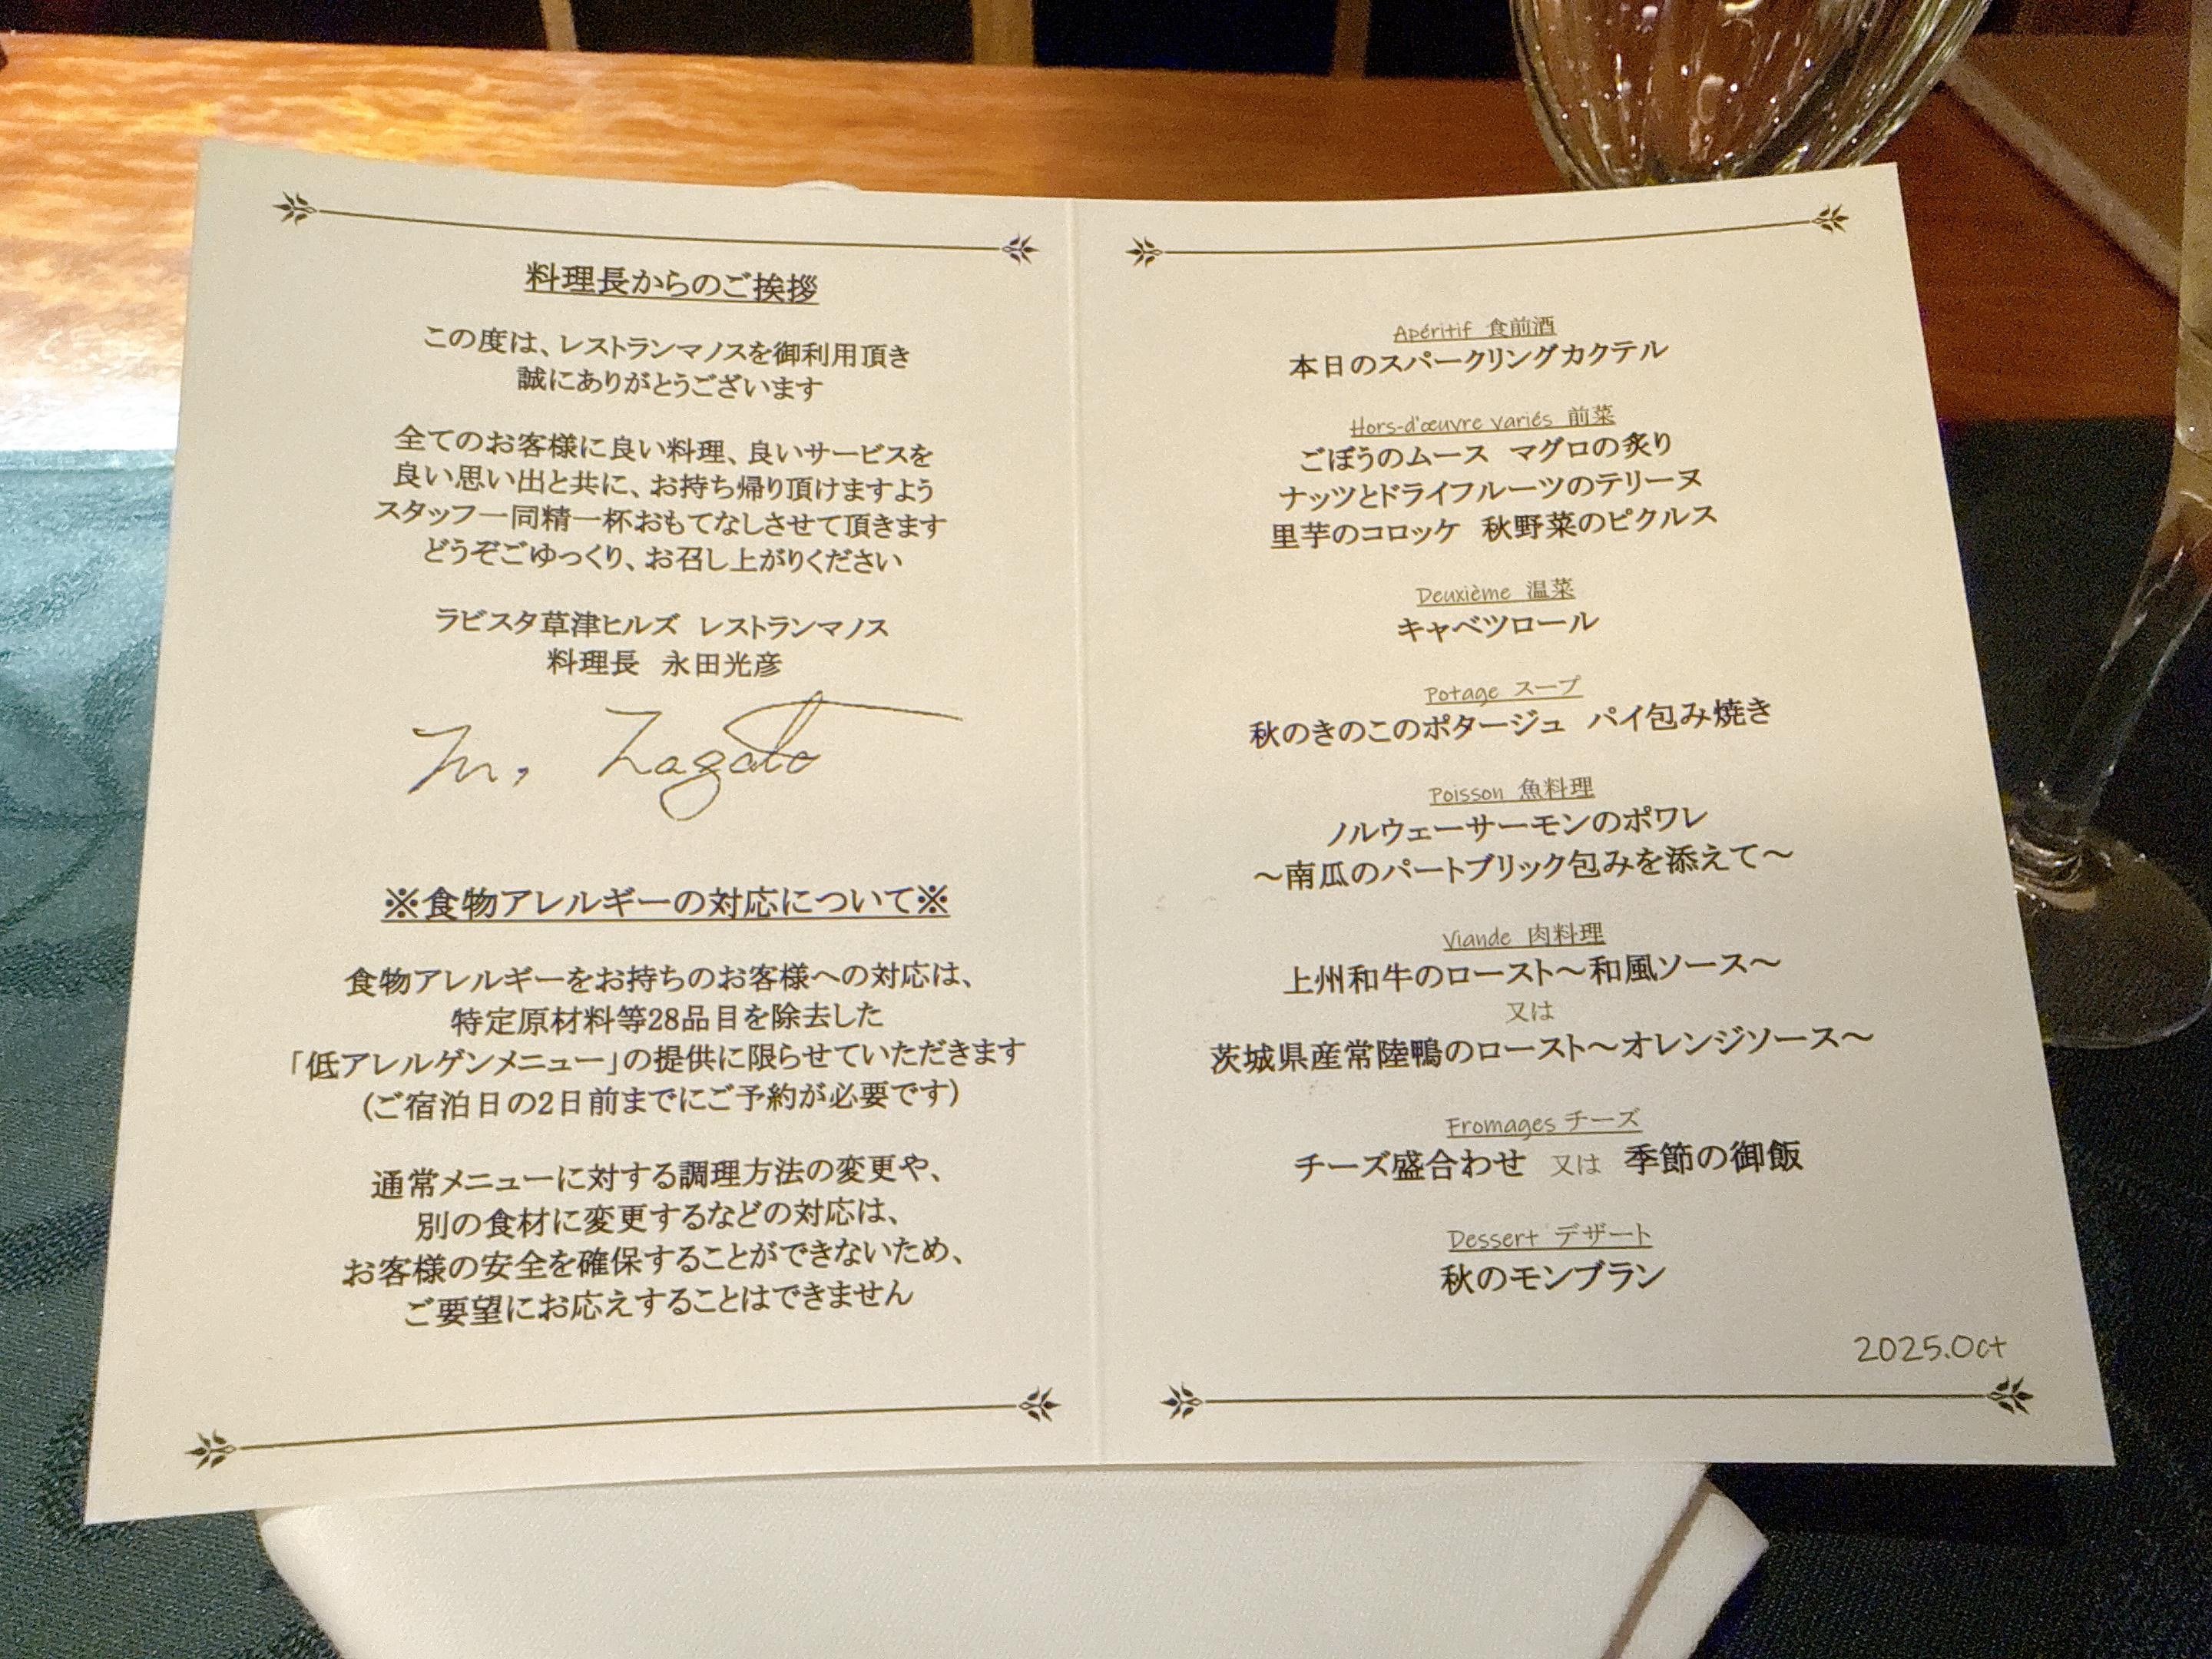 料理長からのご挨拶
この度は、レストランマノスを御利用頂き
誠にありがとうございます
全てのお客様に良い料理、良いサービスを
良い思い出と共に、お持ち帰り頂けますよう
スタッフ一同精一杯おもてなしさせて頂きます
どうぞごゆっくり、お召し上がりください
ラビスタ草津ヒルズ レストランマノス
料理長 永田光彦
M. Nagata
※食物アレルギーの対応について※
食物アレルギーをお持ちのお客様への対応は、
特定原材料等28品目を除去した
「低アレルゲンメニュー」の提供に限らせていただきます
(ご宿泊日の2日前までにご予約が必要です)
通常メニューに対する調理方法の変更や、
別の食材に変更するなどの対応は、
お客様の安全を確保することができないため、
ご要望にお応えすることはできません
Apéritif 食前酒
本日のスパークリングカクテル
Hors-d'œuvre variés 前菜
ごぼうのムース マグロの炙り
ナッツとドライフルーツのテリーヌ
里芋のコロッケ 秋野菜のピクルス
Deuxième 温菜
キャベツロール
Potage スープ
秋のきのこのポタージュ パイ包み焼き
Poisson 魚料理
ノルウェーサーモンのポワレ
～南瓜のパートブリック包みを添えて～
Viande 肉料理
上州和牛のロースト～和風ソース～
又は
茨城県産常陸鴨のロースト～オレンジソース～
Fromages チーズ
チーズ盛合わせ 又は 季節の御飯
Dessert デザート
秋のモンブラン
2025.Oct